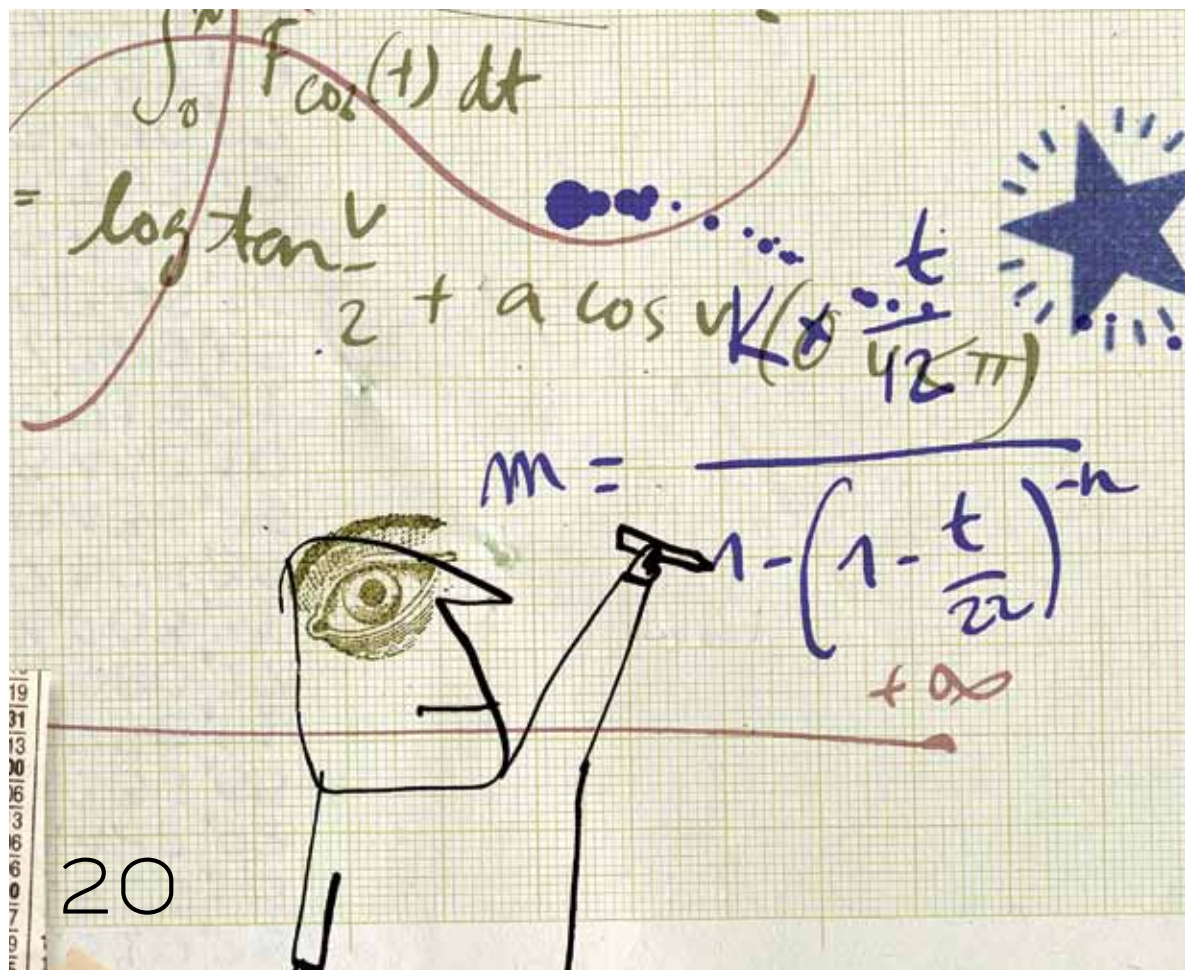 ∫₀ F cos(t) dt
= log tan v/2 + a cos v
K t/42
π)
m =
1 - (1 - t/22)^-n
+ ∞
19
31
13
00
06
3
06
06
0
7
9
20